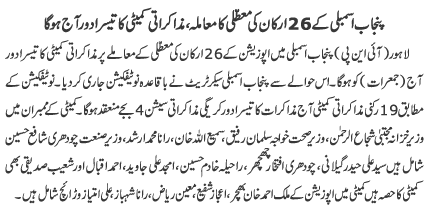 پنجاب اسمبلی کے 26 ارکان کی معطلی کا معاملہ، مذاکراتی کمیٹی کا تیسرا دور آج ہوگا
لاہور (آئی این پی) پنجاب اسمبلی میں اپوزیشن کے 26 ارکان کی معطلی کے معاملے پر مذاکراتی کمیٹی کا تیسرا دور
آج (جمعرات) کو ہوگا۔ اس حوالے سے پنجاب اسمبلی سیکرٹریٹ نے باقاعدہ نوٹیفکیشن جاری کر دیا۔ نوٹیفکیشن کے
مطابق 19 رکنی مذاکراتی کمیٹی آج مذاکرات کا تیسرا دور کریگی مذاکراتی سیشن 4 بجے منعقد ہوگا۔ کمیٹی کے ممبران میں
وزیر خزانہ مجتبیٰ شجاع الرحمٰن، وزیر صحت خواجہ سلمان رفیق، سمیع اللہ خان، رانا محمد ارشد، وزیر صنعت چودھری شافع حسین
شامل ہیں سید علی حیدر گیلانی، چودھری افتخار چھچھر، راحیلہ خادم حسین، امجد علی جاوید، احمد اقبال اور شعیب صدیقی بھی
کمیٹی کا حصہ ہیں کمیٹی میں اپوزیشن کے ملک احمد خان بھچر، اعجاز شفیع، معین ریاض، رانا شہباز، علی امتیاز وڑائچ شامل ہیں۔